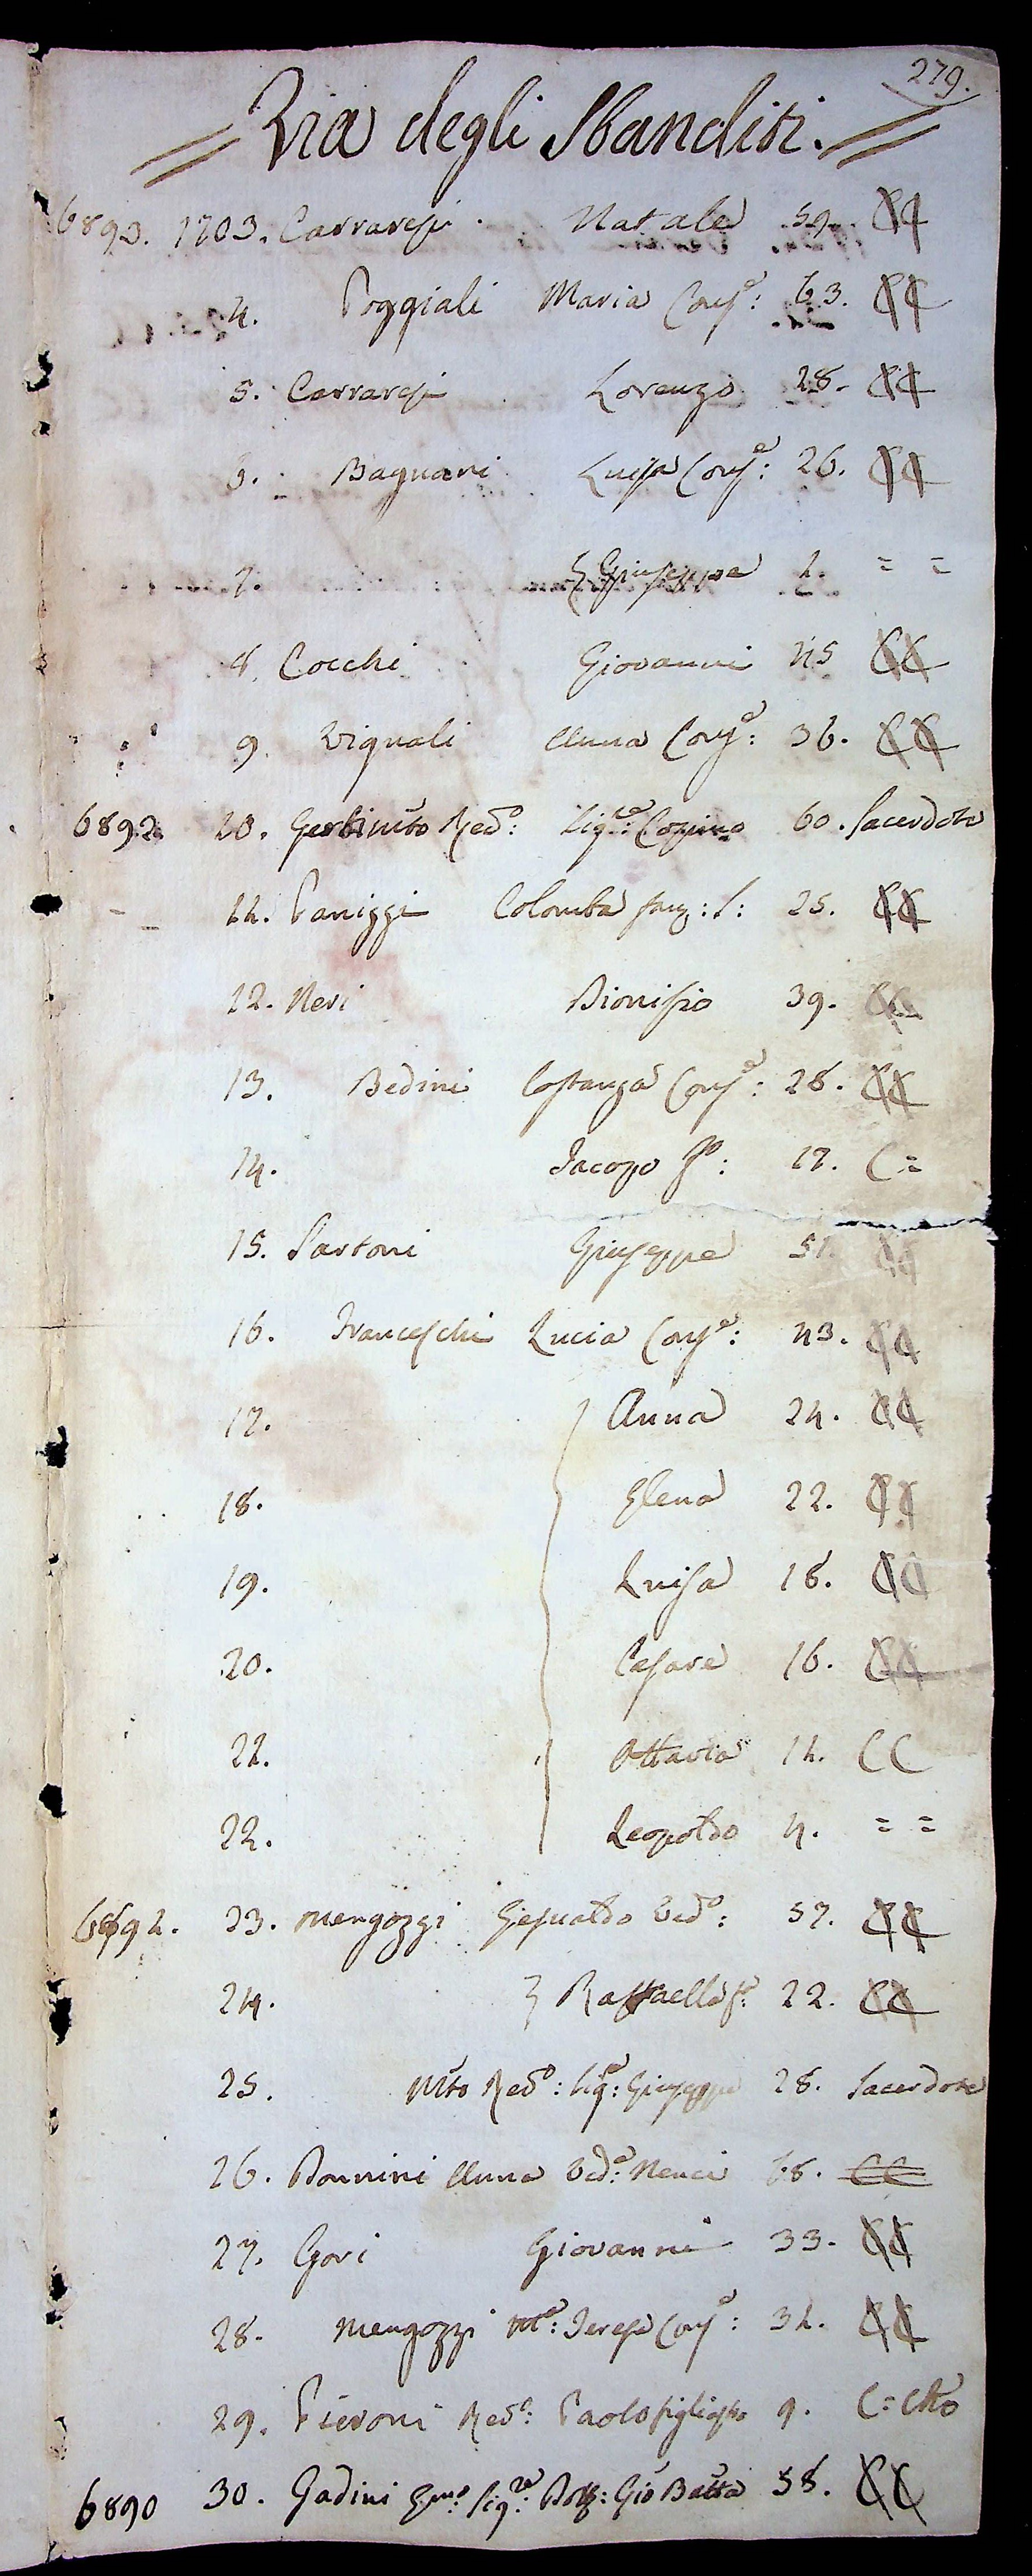 279.
Via degli Sbanditi.
6893. 1703. Carraresi. Natale 59. CC
4. Poggiali Maria Cons.e: 63. CC
5. Carraresi Lorenzo 28. CC
6. Bagnani Luisa Cons.e: 26. CC
7. Giuseppe 1. = =
8. Cocchi Giovanni 45 CC
9. Vignali Anna Cons.e: 36. CC
6892. 10. Red.o: Sig.re: 60. Sacerdote
11. Paniggi Colomba 25. CC
12. Neri Dionisio 39. CC
13. Bedini Costanza Cons.e: 28. CC
14. Jacopo 17. C =
15. Sartoni Giuseppe 51. CC
16. Franceschi Lucia Cons.e: 43. CC
17. Anna 24. CC
18. Elena 22. CC
19. Luisa 18. CC
20. Cesare 16. CC
21. Ottavia 11. CC
22. Leopoldo 4. = =
6891. 23. Mengozzi Gesualdo Ved.o: 57. CC
24. Raffaello f.o: 22. CC
25. Mto Red.o: Sig.e: Giuseppe 28. Sacerdote
26. Bonnini Anna Ved.a: Nenci 68. CC
27. Gori Giovanni 33. CC
28. Mengozzi M.a: Teresa Cons.e: 31. CC
29. Pieroni Red.o: Paolo figliastro 9. C = Cto
6890 30. Gadini Sig.re: Dott: Gio Batta 58. CC